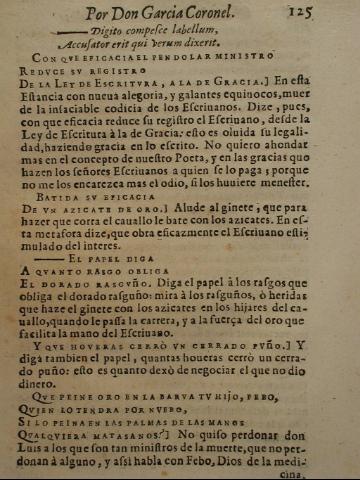 Por Don Garcia Coronel. 125
Digito compesce labellum,
Accusator erit qui verum dixerit.
CON QVE EFICACIA EL PENDOLAR MINISTRO
REDVCE SV REGISTRO
DE LA LEY DE ESCRITVRA, A LA DE GRACIA.] En esta
Estancia con nueua alegoria, y galantes equinocos, muer
de la insaciable codicia de los Escriuanos. Dize, pues,
con que eficacia reduce su registro el Escriuano, desde la
Ley de Escritura à la de Gracia: esto es oluida su legali-
dad, haziendo gracia en lo escrito. No quiero ahondar
mas en el concepto de nuestro Poeta, y en las gracias quo
hazen los señores Escriuanos a quien se lo paga; porque
no me los encarezca mas el odio, si los huuiere menester.
BATIDA SV EFICACIA
DE VN AZICATE DE ORO.] Alude al ginete, que para
hazer que corra el cauallo le bate con los azicates. En es-
ta metafora dize, que obra eficazmente el Escriuano esti-
mulado del interes.
EL PAPEL DIGA
A QVANTO RASGO OBLIGA
EL DORADO RASGVÑO. Diga el papel à los rasgos que
obliga el dorado rasguño: mira à los rasguños, ò heridas
que haze el ginete con los azicates en los hijares del ca-
uallo, quando le passa la carrera, y a la fuerça del oro que
facilita la mano del Escriuano.
Y QVE HOVERAS CERRÒ VN CERRADO PVÑO.] Y
diga tambien el papel, quantas houeras cerrò un cerra-
do puño: esto es quanto dexò de negociar el que no dio
dinero.
QVE PEINE ORO EN LA BARVA TV HIJO, FEBO,
QVIEN LO TENDRA POR NVEBO,
SI LO PEINA EN LAS PALMAS DE LAS MANOS
QVALQVIERA MATASANOS?] No quiso perdonar don
Luis a los que son tan ministros de la muerte, que no per-
donan à alguno, y assi habla con Febo, Dios de la medi-
cina,